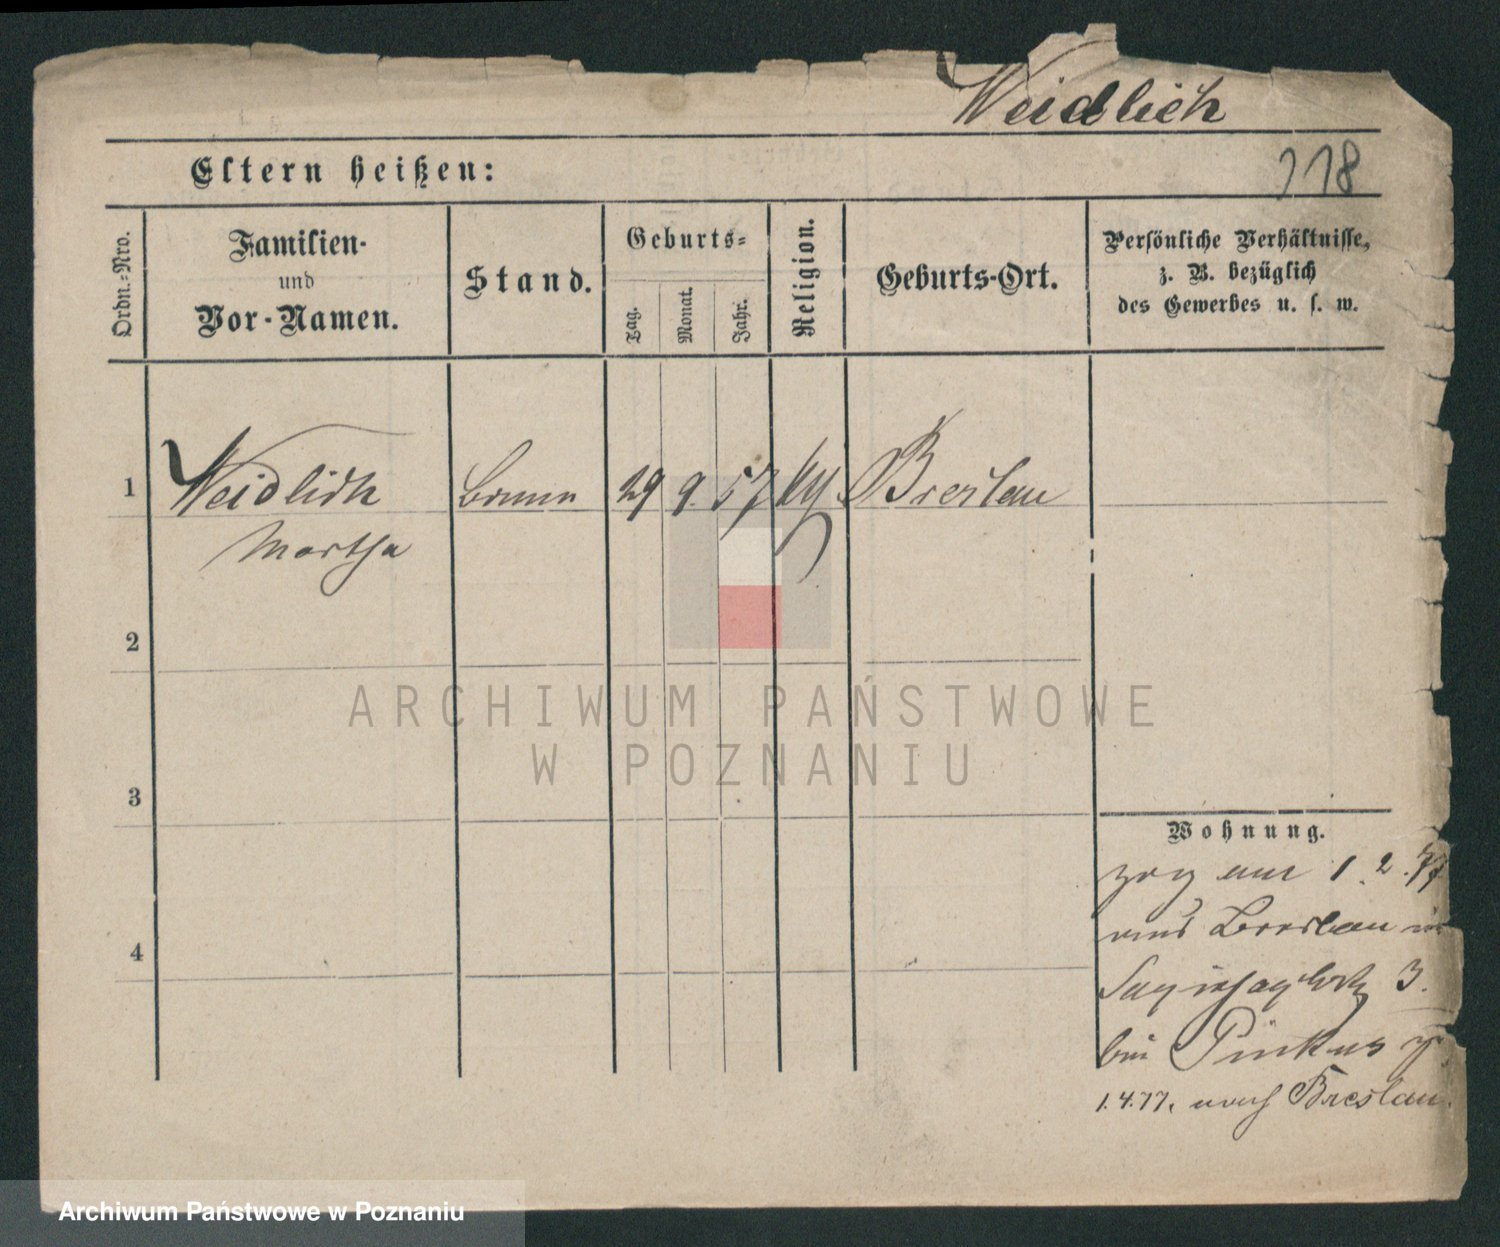 Weidlich
118
Eltern heißen:
Ordn.-Nro.
Familien-
und
Vor-Namen.
Stand.
Geburts-
Tag.
Monat.
Jahr.
Religion.
Geburts-Ort.
Persönliche Verhältnisse,
z. B. bezüglich
des Gewerbes u. s. w.
1
Weidlich
29 9. 57
Breslau
Martha
2
3
4
Wohnung.
zog am 1.2.77
aus Breslau in
3.
bei Pinkus
1.4.77. nach Breslau.
ARCHIWUM PAŃSTWOWE
W POZNANIU
Archiwum Państwowe w Poznaniu